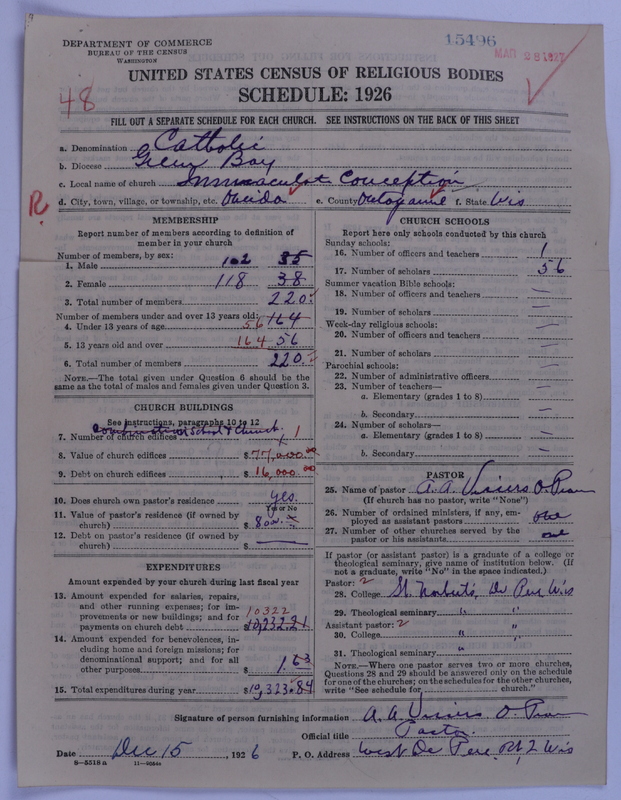 DEPARTMENT OF COMMERCE
BUREAU OF THE CENSUS
WASHINGTON
15496
MAR 29 1927
48
UNITED STATES CENSUS OF RELIGIOUS BODIES
SCHEDULE: 1926
FILL OUT A SEPARATE SCHEDULE FOR EACH CHURCH. SEE INSTRUCTIONS ON THE BACK OF THIS SHEET
a. Denomination Catholic
b. Diocese Green Bay
c. Local name of church Immaculate Conception
R
d. City, town, village, or township, etc. Oneida e. County Outagamie f. State Wis
MEMBERSHIP
Report number of members according to definition of
member in your church
Number of members, by sex:
1. Male 102 85
2. Female 118 38
3. Total number of members 220
Number of members under and over 13 years old:
4. Under 13 years of age 56 164
5. 13 years old and over 164 56
6. Total number of members 220
NOTE.—The total given under Question 6 should be the
same as the total of males and females given under Question 3.
CHURCH BUILDINGS
See instructions, paragraphs 10 to 12
Combination School & Church
7. Number of church edifices 1
8. Value of church edifices $ 77,000.00
9. Debt on church edifices $ 16,000.00
10. Does church own pastor's residence yes.
Yes or No
11. Value of pastor's residence (if owned by
church) $ 8000
12. Debt on pastor's residence (if owned by
church) $
EXPENDITURES
Amount expended by your church during last fiscal year
13. Amount expended for salaries, repairs,
and other running expenses; for im-
provements or new buildings; and for
payments on church debt 10322 $ 10,322.21
14. Amount expended for benevolences, in-
cluding home and foreign missions; for
denominational support; and for all
other purposes $ 1.63
15. Total expenditures during year $ 10,323.84
CHURCH SCHOOLS
Report here only schools conducted by this church
Sunday schools:
16. Number of officers and teachers 1
17. Number of scholars 56
Summer vacation Bible schools:
18. Number of officers and teachers —
19. Number of scholars —
Week-day religious schools:
20. Number of officers and teachers —
21. Number of scholars —
Parochial schools:
22. Number of administrative officers —
23. Number of teachers—
a. Elementary (grades 1 to 8) —
b. Secondary —
24. Number of scholars—
a. Elementary (grades 1 to 8) —
b. Secondary —
PASTOR
25. Name of pastor A. A. Vissers O. Praem
(If church has no pastor, write "None")
26. Number of ordained ministers, if any, em-
ployed as assistant pastors one
27. Number of other churches served by the
pastor or his assistants one
If pastor (or assistant pastor) is a graduate of a college or
theological seminary, give name of institution below. (If
not a graduate, write "No" in the space indicated.)
Pastor: 2
28. College St. Norbert's, De Pere Wis
29. Theological seminary " "
Assistant pastor: 2
30. College " "
31. Theological seminary "
NOTE.—Where one pastor serves two or more churches,
Questions 28 and 29 should be answered only on the schedule
for one of the churches; on the schedules for the other churches,
write "See schedule for church."
Signature of person furnishing information A. A. Vissers O. Praem
Official title Pastor
Date Dec 15, 1926 P. O. Address West De Pere, Rt. 2 Wis
8-5518 a